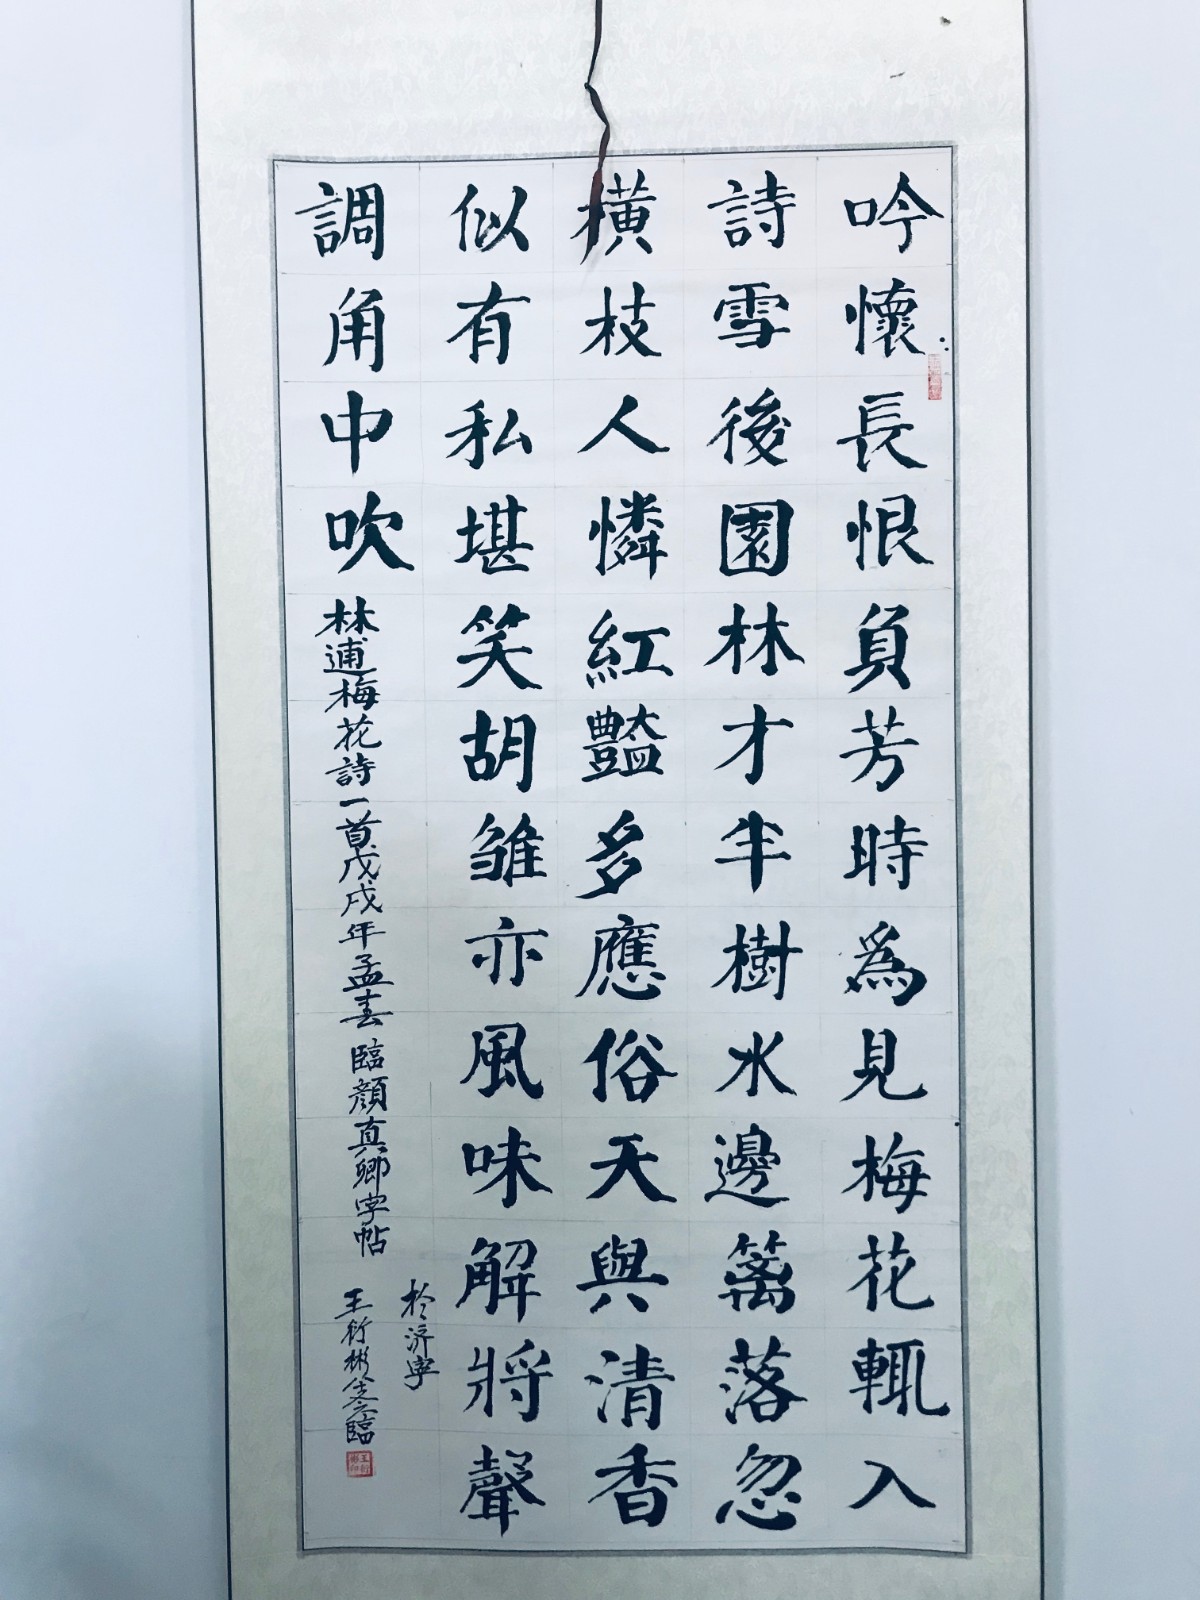 吟懷長恨負芳時為見梅花輒入
詩雪後園林才半樹水邊篱落忽
橫枝人憐紅豔多應俗天與清香
似有私堪笑胡雛亦風味解將聲
調角中吹
林逋梅花詩一首戊戌年孟春臨顏真卿字帖
於济寧
王衍彬
臨